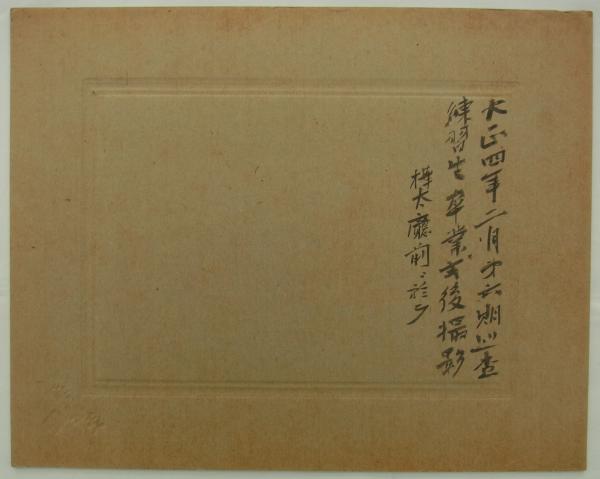 大正四年二月第六期巡査
練習生卒業式後撮影
樺太廳前ニ於テ